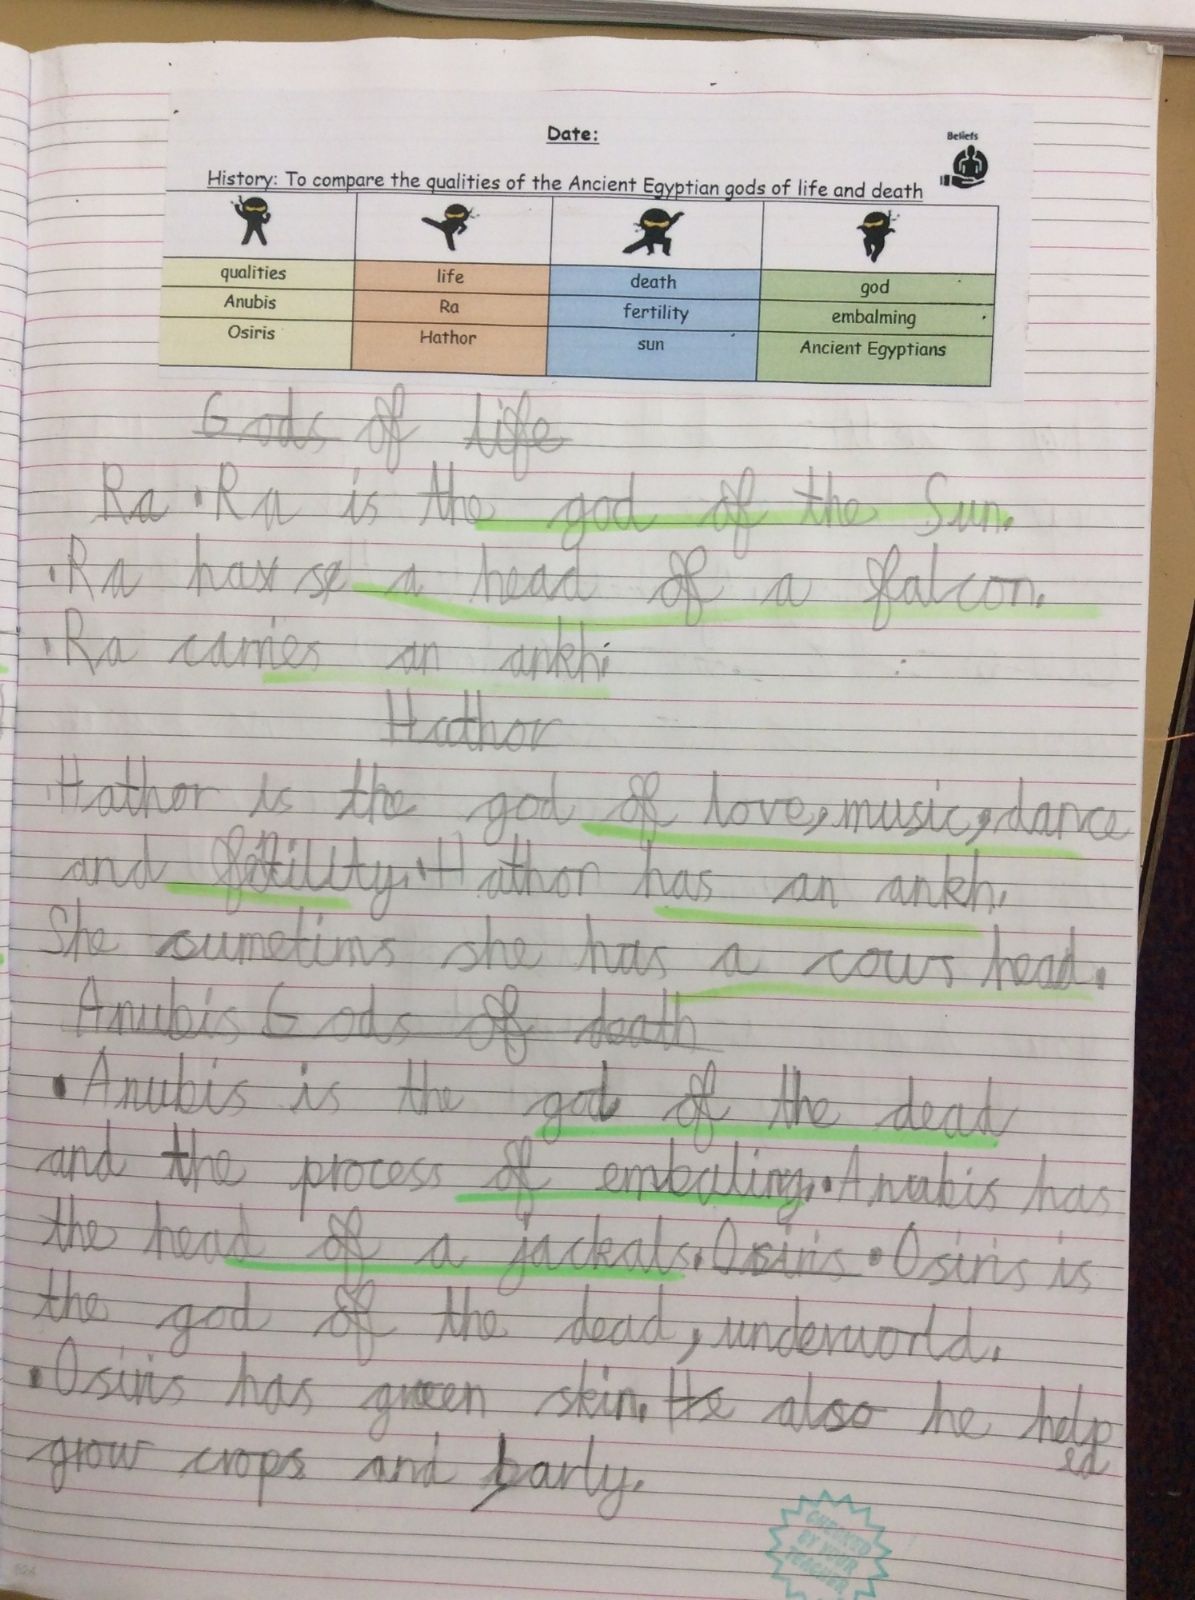 Date:
Beliefs
History: To compare the qualities of the Ancient Egyptian gods of life and death
qualities life death god
Anubis Ra fertility embalming
Osiris Hathor sun Ancient Egyptians
Gods of life
Ra • Ra is the god of the Sun.
• Ra has a head of a falcon.
• Ra carries an ankh.
Hathor
Hathor is the god of love, music, dance
and fitility. • Hathor has an ankh.
She sumetims she has a cows head.
Anubis Gods of death
• Anubis is the god of the dead
and the process of embaling. • Anubis has
the head of a jackals. Osiris • Osiris is
the god of the dead, underworld.
• Osiris has green skin. He also he helped
grow crops and barly.
CHECKED
BY YOUR
TEACHER